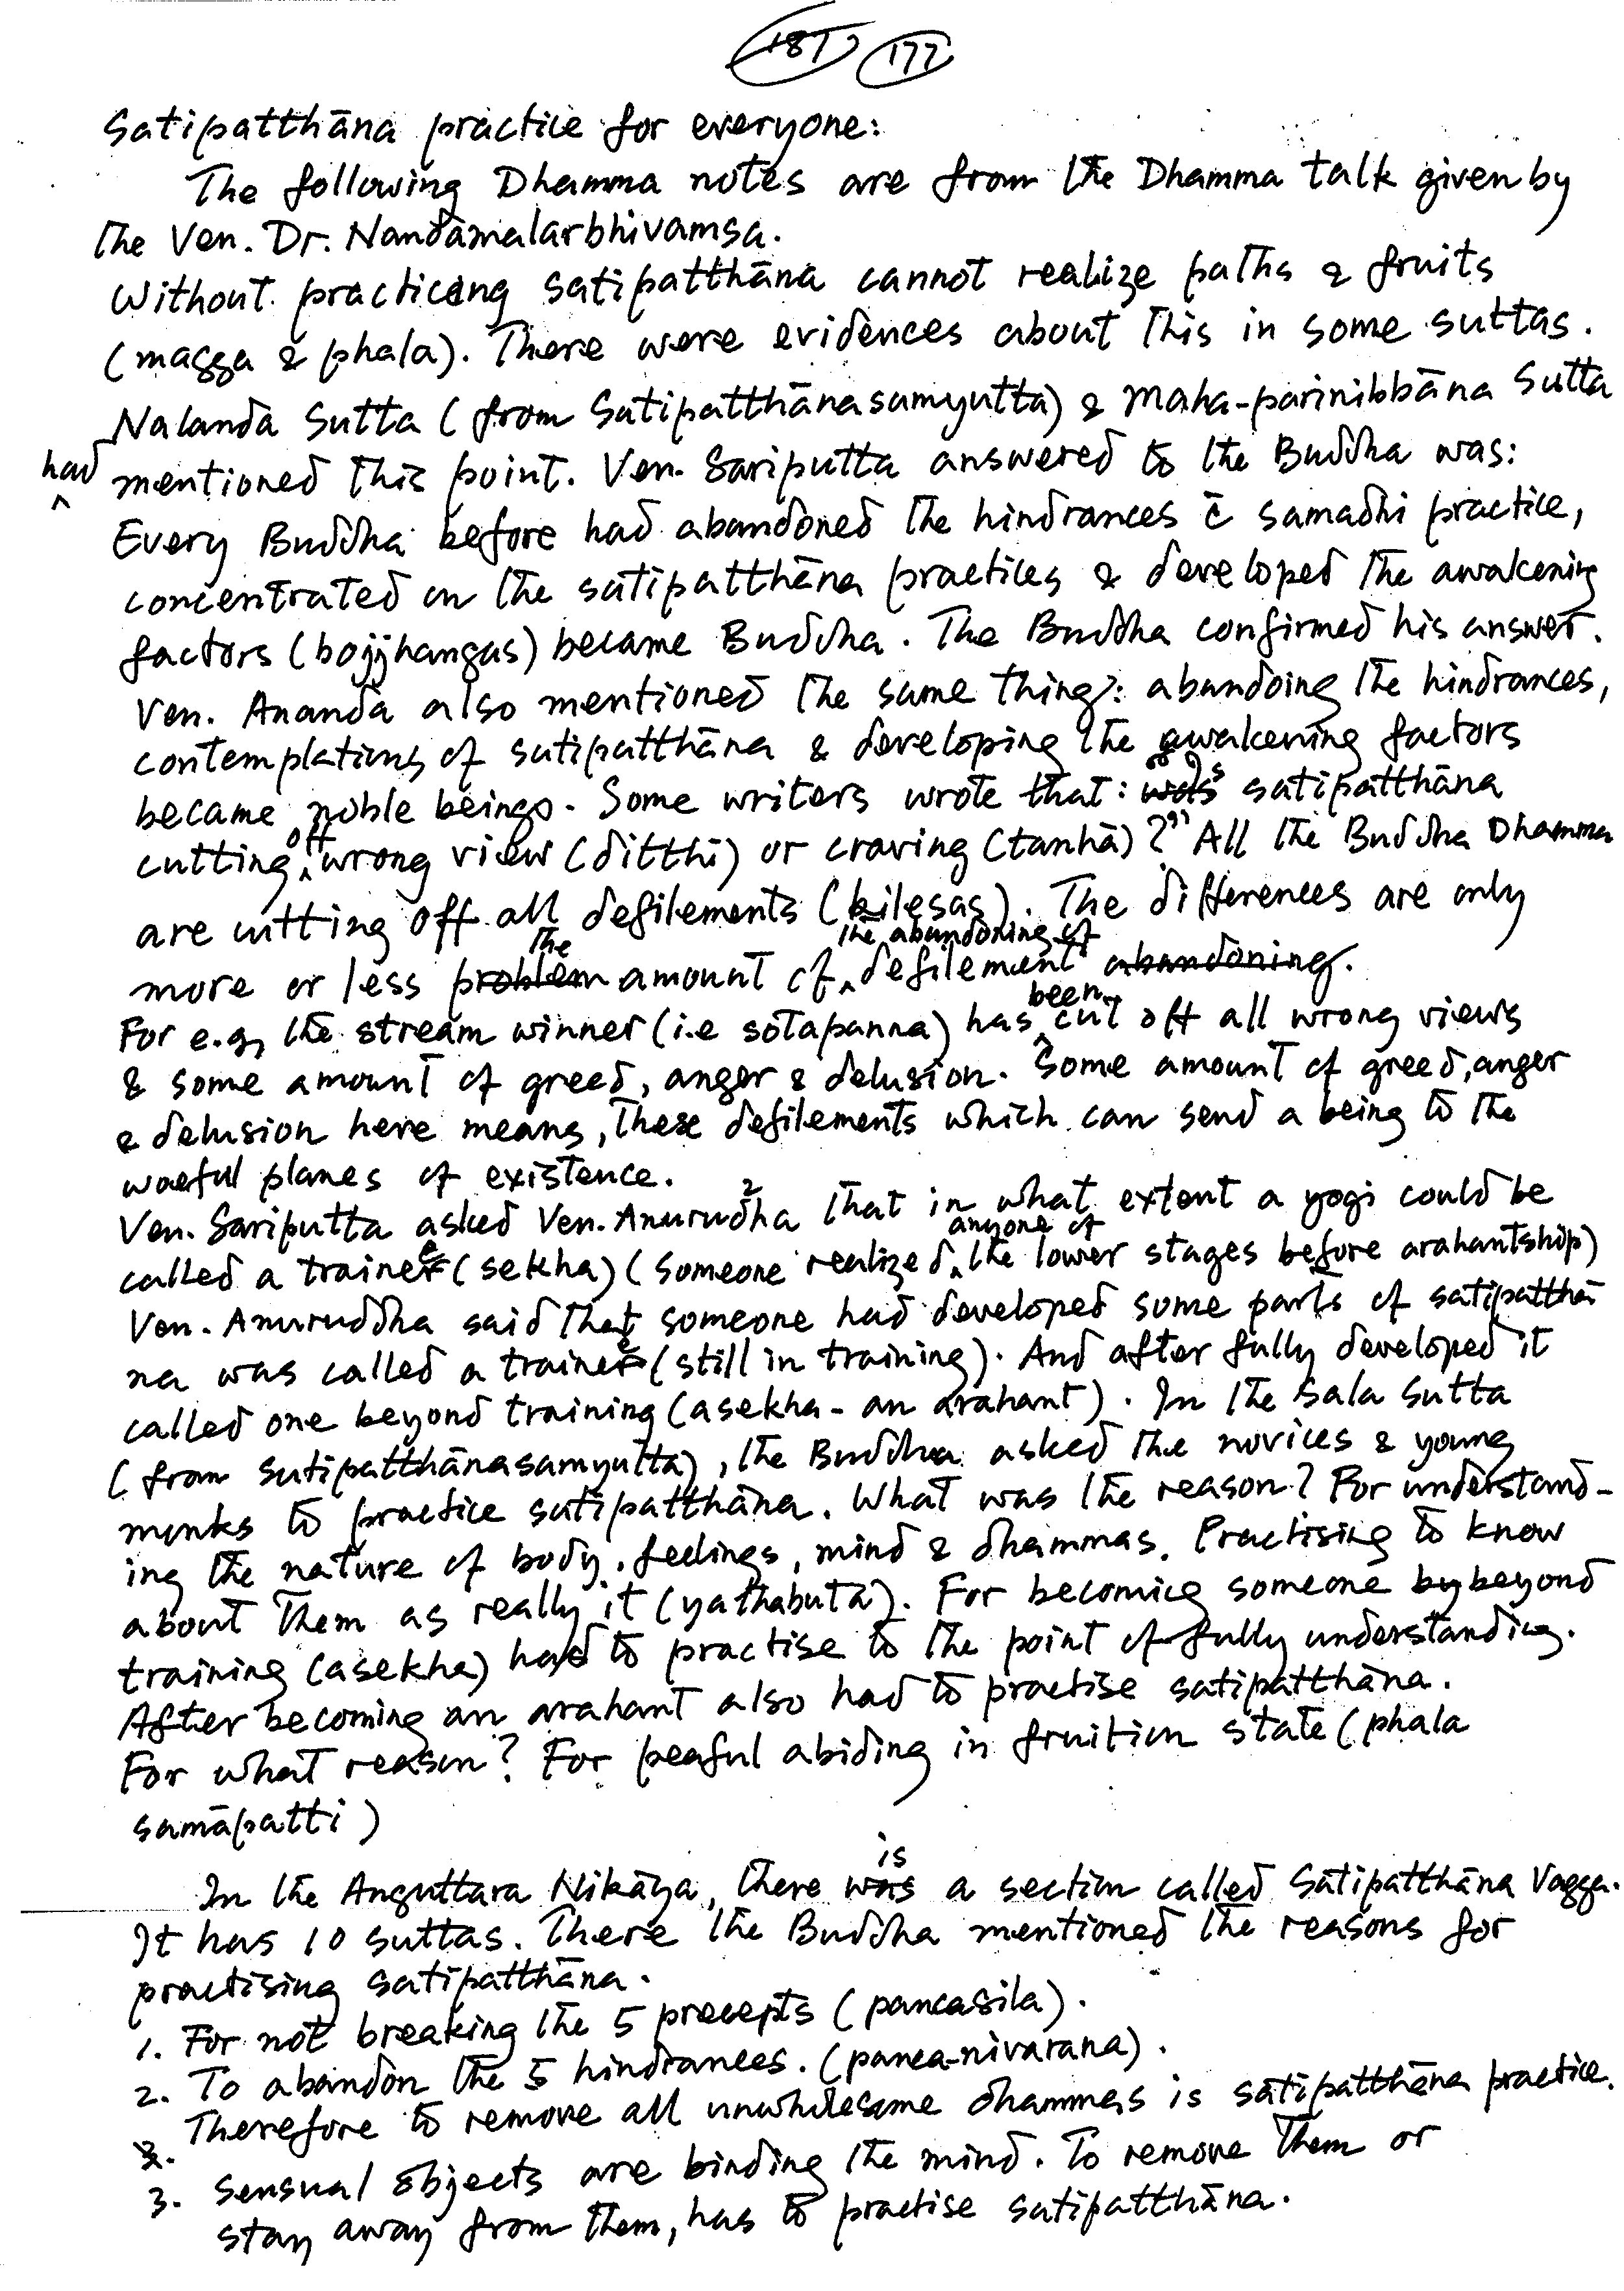 187 177
Satipatthāna practice for everyone:
The following Dhamma notes are from the Dhamma talk given by
the Ven. Dr. Nandamalarbhivamsa.
Without practicing satipatthāna cannot realize paths & fruits
(magga & phala). There were evidences about this in some suttas.
Nalanda Sutta (from Satipatthānasamyutta) & Maha-parinibbāna Sutta
had mentioned this point. Ven. Sariputta answered to the Buddha was:
Every Buddha before had abandoned the hindrances c̄ samadhi practice,
concentrated on the satipatthāna practices & developed the awakening
factors (bojjhangas) became Buddha. The Buddha confirmed his answer.
Ven. Ananda also mentioned the same thing: abandoing the hindrances,
contemplations of satipatthāna & developing the awakening factors
became noble beings. Some writers wrote that: is satipatthāna
cutting off wrong view (ditthi) or craving (tanhā)?" All the Buddha Dhamma
are cutting off all defilements (kilesas). The differences are only
more or less the amount of the abandoning of defilement.
For e.g, the stream winner (i.e sotapanna) has been cut off all wrong views
& some amount of greed, anger & delusion. Some amount of greed, anger
& delusion here means, these defilements which can send a being to the
woeful planes of existence.
Ven. Sariputta asked Ven. Anurudha that in what extent a yogi could be
called a trainee (sekha) (someone realized anyone of the lower stages before arahantship)
Ven. Anuruddha said that someone had developed some parts of satipatthā
na was called a trainee (still in training). And after fully developed it
called one beyond training (asekha - an arahant). In the Sala Sutta
(from satipatthānasamyutta), the Buddha asked the novices & young
monks to practice satipatthāna. What was the reason? For understand-
ing the nature of body, feelings, mind & dhammas. Practising to know
about them as really it (yathabuta). For becoming someone beyond
training (asekha) had to practise to the point of fully understanding.
After becoming an arahant also had to practise satipatthāna.
For what reason? For peaful abiding in fruition state (phala
samāpatti)
In the Anguttara Nikāya, there is a section called Satipatthāna Vagga.
It has 10 suttas. There the Buddha mentioned the reasons for
practising satipatthāna.
1. For not breaking the 5 precepts (pancasila).
2. To abandon the 5 hindrances. (panca-nivarana).
Therefore to remove all unwholesome dhammas is satipatthāna practice.
3. Sensual objects are binding the mind. To remove them or
stay away from them, has to practise satipatthāna.